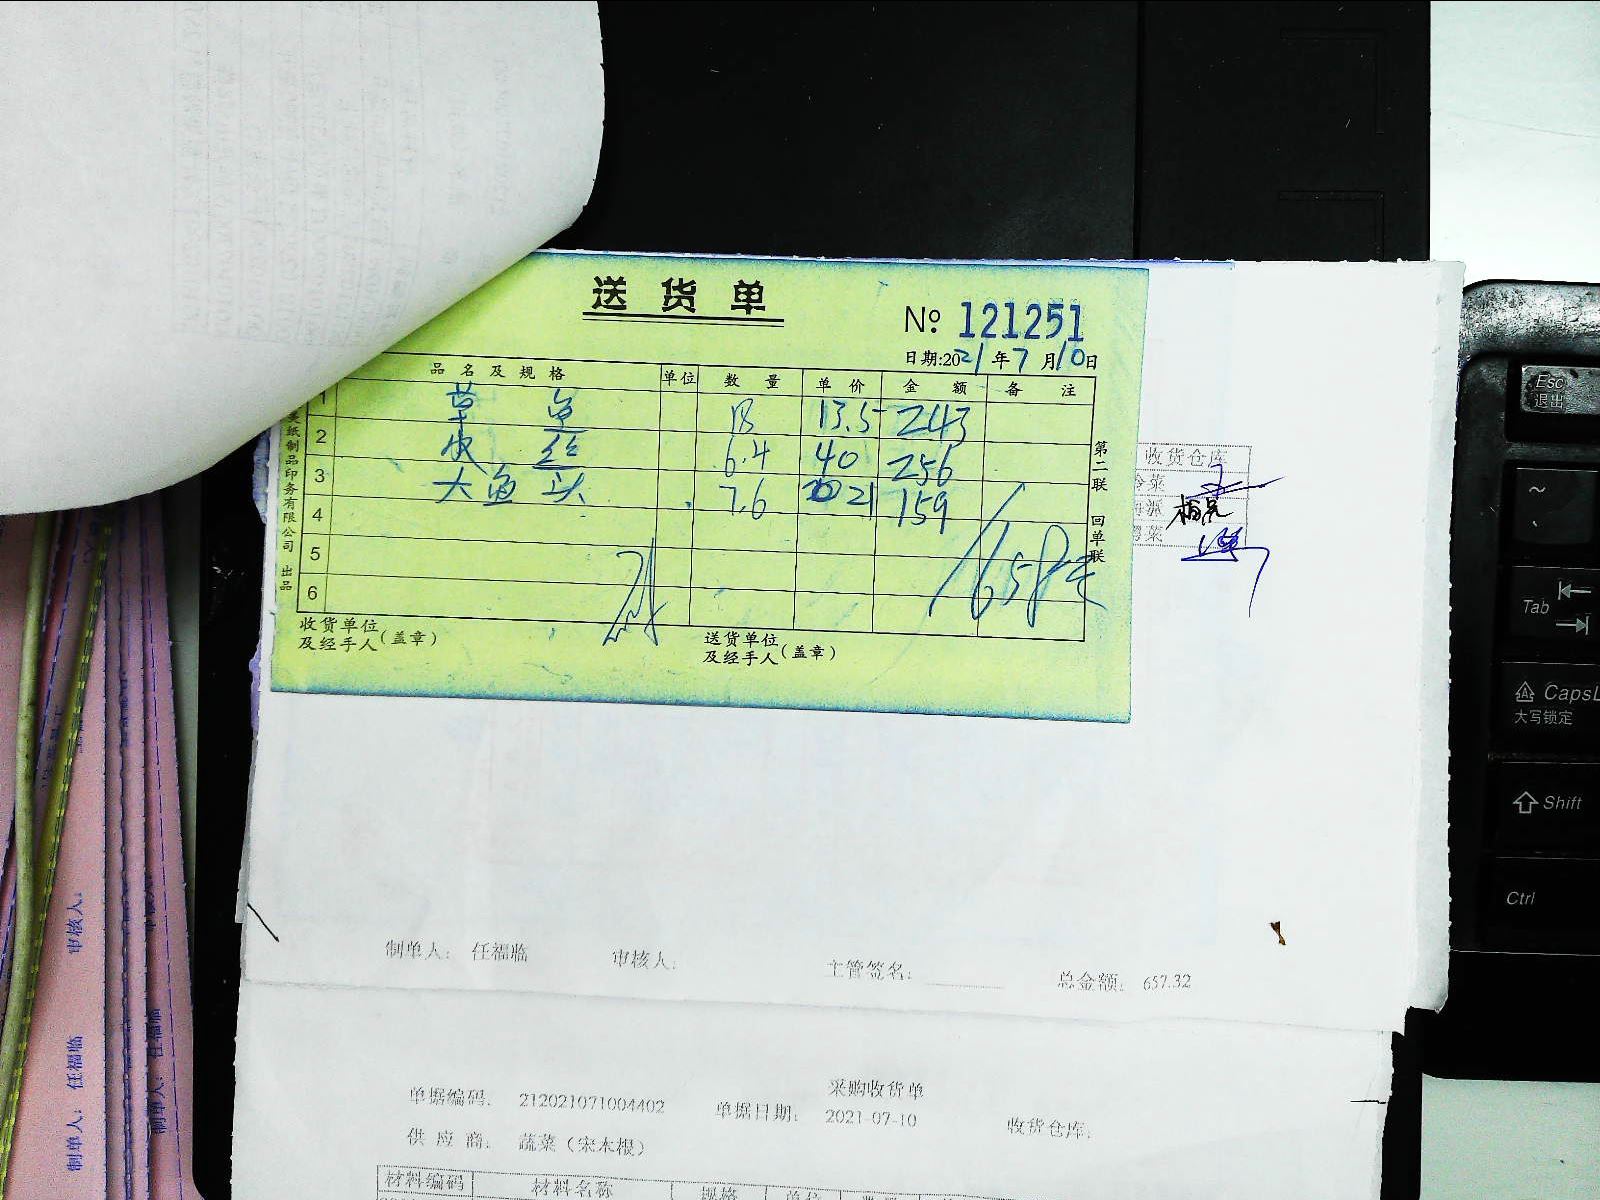 送货单
№ 121251
日期:2021年7月10日
品名及规格 单位 数量 单价 金额 备注
1 草鱼 18 13.5 243
2 皮丝 6.4 40 256
3 大鱼头 7.6 21 159
4
5
6
658元
收货单位
及经手人(盖章)
送货单位
及经手人(盖章)
第二联 回单联
纸制品印务有限公司 出品
收货仓库
制单人: 任福临 审核人: 主管签名: 总金额: 657.32
采购收货单
单据编码: 212021071004402 单据日期: 2021-07-10 收货仓库:
供应商: 蔬菜(宋本根)
材料编码 材料名称 规格 单位
审核人:
制单人: 任福临
制单人: 任福临
Esc
退出
~
Tab
CapsL
大写锁定
Shift
Ctrl